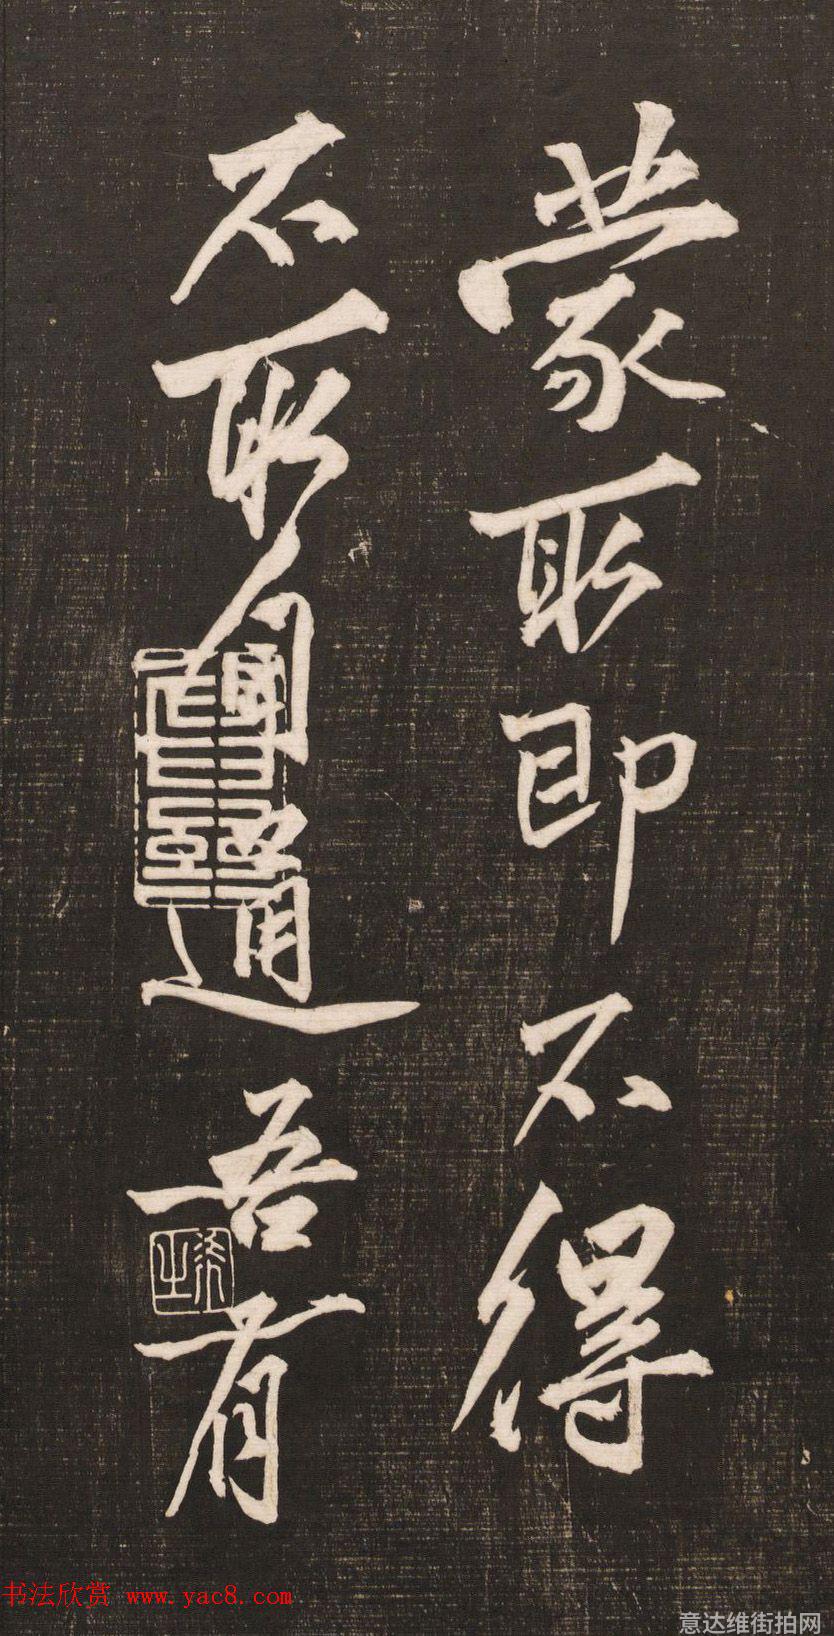 蒙取即不得
不取自通吾有
书法欣赏 www.yac8.com
意达维街拍网